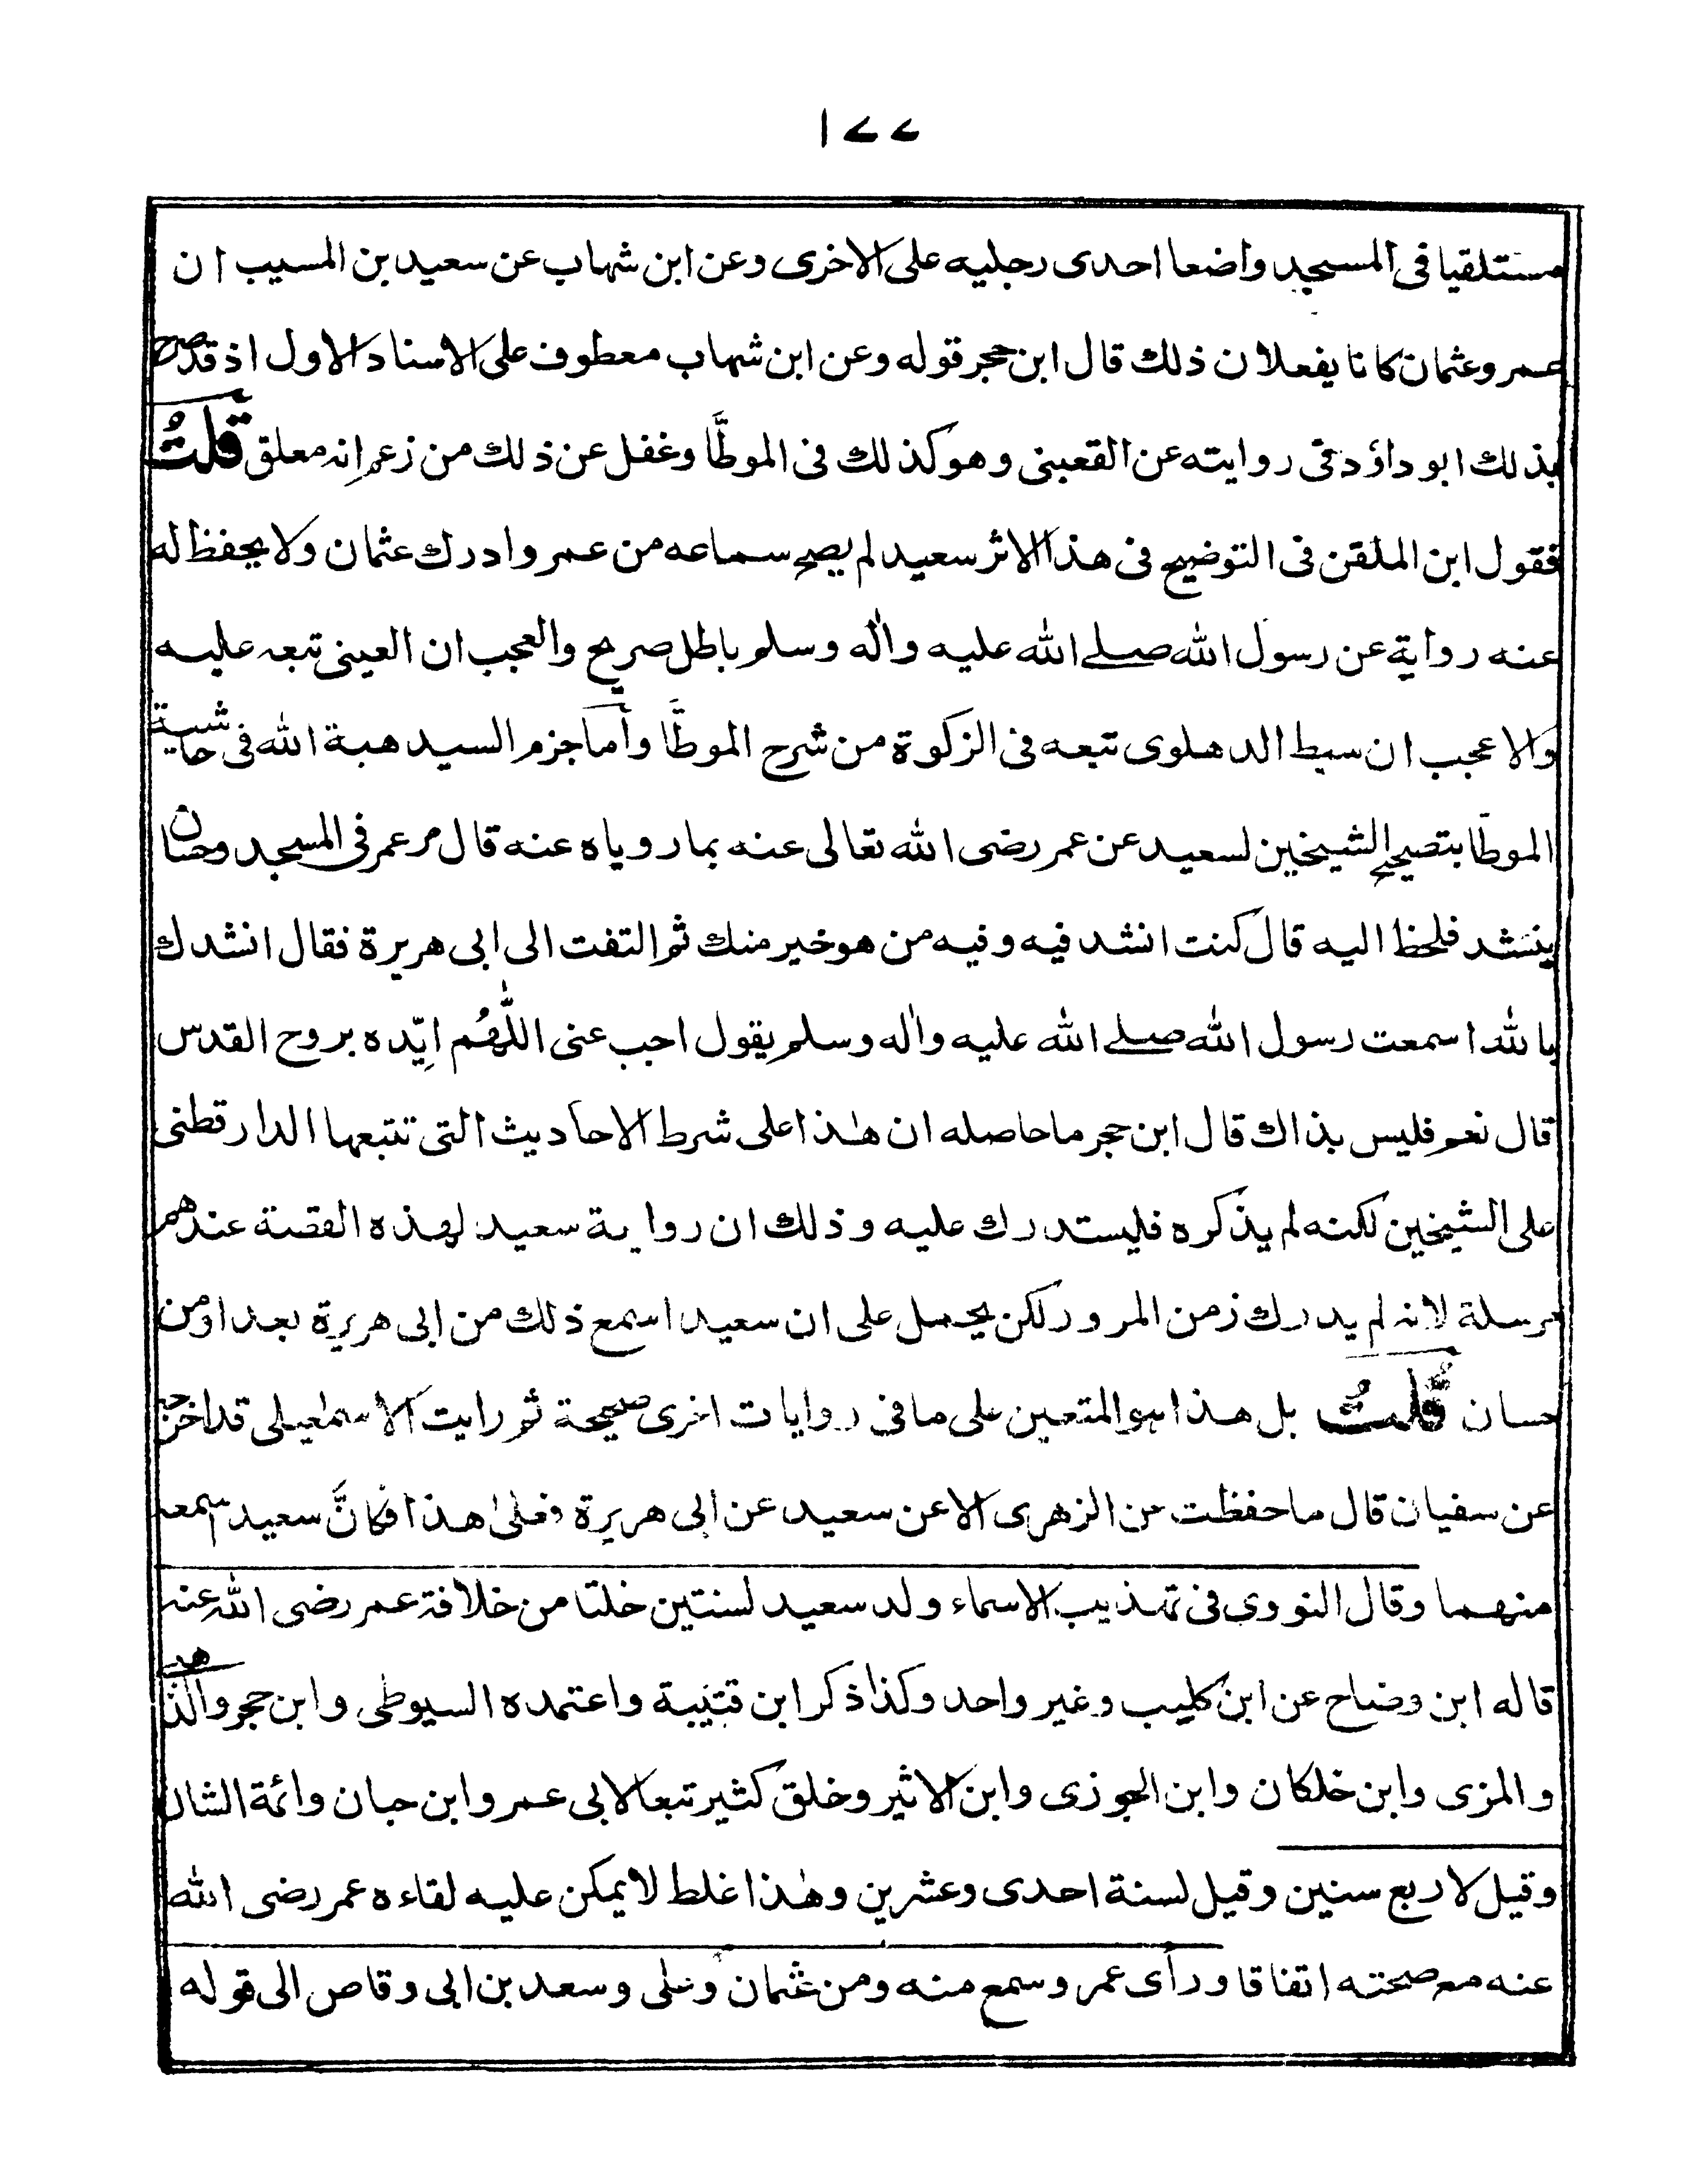 ١٧٧
مستلقيا فى المسجد واضعا احدى رجليه على الاخرى وعن ابن شهاب عن سعيد بن المسيب ان
عمر وعثمان كانا يفعلان ذلك قال ابن حجر قوله وعن ابن شهاب معطوف على الاسناد الاول اذ قد صرح
بذلك ابو داؤد فى روايته عن القعبنى وهو كذلك فى الموطّا وغفل عن ذلك من زعم انه معلق قلتُ
فقول ابن الملقن فى التوضيح فى هذا الاثر سعيد لم يصح سماعه من عمر وادرك عثمان ولا يحفظ له
عنه رواية عن رسول الله صلے الله عليه واٰله وسلم باطل صريح والعجب ان العينى تبعه عليه
والاعجب ان سبط الدهلوى تبعه فى الزكوة من شرح الموطّا وأما جزم السيد هبة الله فى حاشية
الموطّا بتصحيح الشيخين لسعيد عن عمر رضى الله تعالى عنه بما روياه عنه قال مر عمر فى المسجد وحسان
ينشد فلحظ اليه قال كنت انشد فيه وفيه من هو خير منك ثم التفت الى ابى هريرة فقال انشدك
بالله اسمعت رسول الله صلے الله عليه واٰله وسلم يقول اجب عنى اللّٰهُم ايّده بروح القدس
قال نعم فليس بذاك قال ابن حجر ما حاصله ان هٰذا على شرط الاحاديث التى تتبعها الدارقطنى
على الشيخين لكنه لم يذكره فليستدرك عليه وذلك ان رواية سعيد لهذه القصة عندهم
مرسلة لانه لم يدرك زمن المرور لكن يحمل على ان سعيدا سمع ذلك من ابى هريرة بعد او من
حسان قُلتُ بل هذا هو المتعين على ما فى روايات اخرى صحيحة ثم رايت الاسمٰعيلى قد اخرجه
عن سفيان قال ما حفظت عن الزهرى الا عن سعيد عن ابى هريرة فعلىٰ هذا فكانَّ سعيد سمعه
منهما وقال النووى فى تهذيب الاسماء ولد سعيد لسنتين خلتا من خلافة عمر رضى الله عنه
قاله ابن وضاح عن ابن كليب وغير واحد وكذا ذكر ابن قتيبة واعتمده السيوطى وابن حجر والذهبى
والمزى وابن خلكان وابن الجوزى وابن الاثير وخلق كثير تبعا لابى عمر وابن حبان وائمة الشان
وقيل لاربع سنين وقيل لسنة احدى وعشرين وهٰذا غلط لا يمكن عليه لقاءه عمر رضى الله
عنه مع صحته اتفاقا ورأى عمر وسمع منه ومن عثمان وعلى وسعد بن ابى وقاص الى قوله